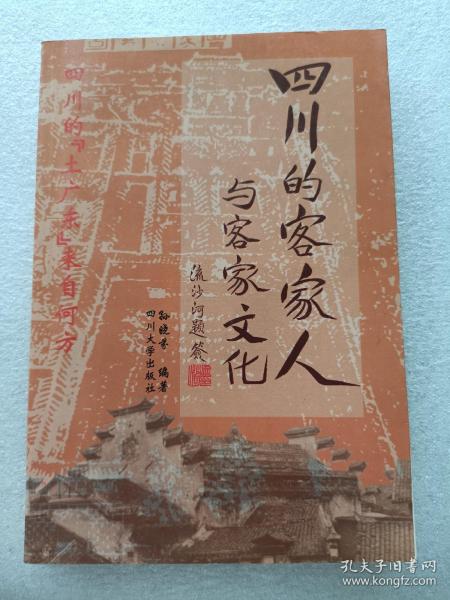 四川的客家人
与客家文化
流沙河题签
孙晓芬 编著
四川大学出版社
四川的『土广东』来自何方
孔夫子旧书网
www.kongfz.com